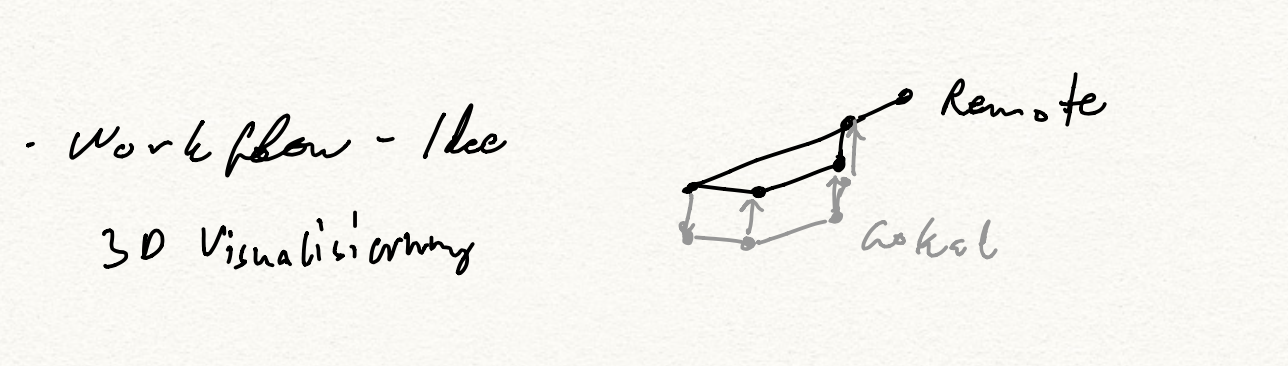 · Workflow - Idee
3D Visualisierung
Remote
Lokal